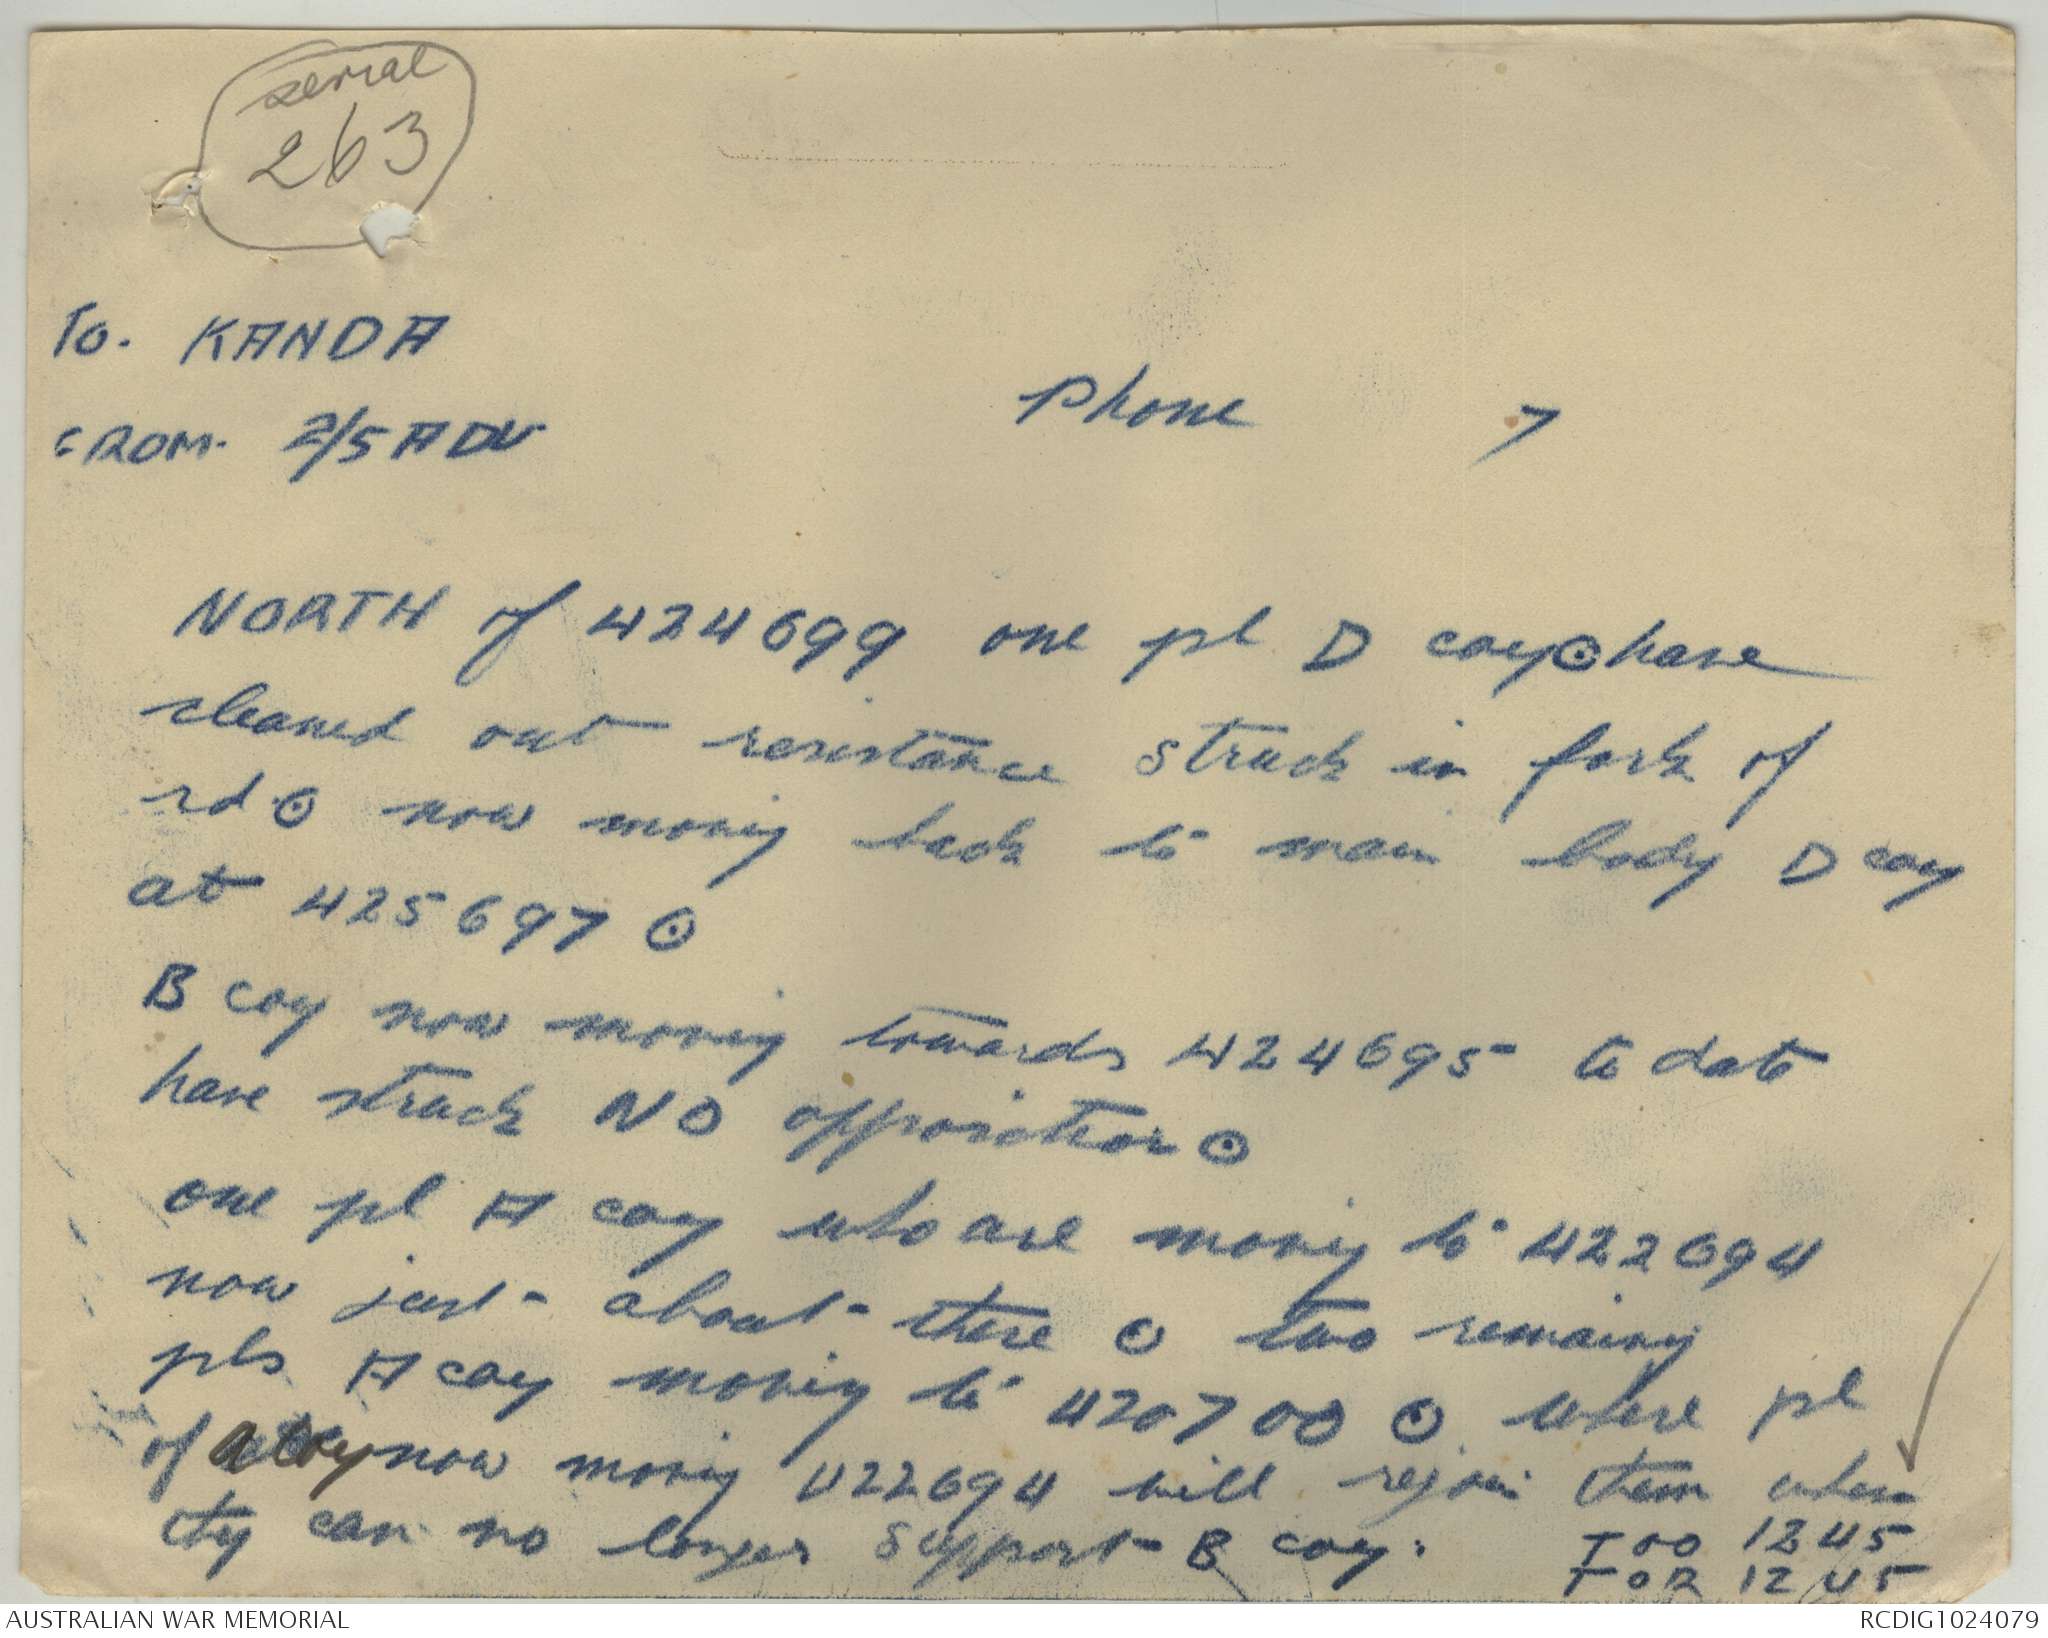 serial
263
To. KANDA
FROM. 2/5 ADV
Phone 7
NORTH of 424699 one pl D coy ⊙ have
cleaned out resistance struck in fork of
rd. ⊙ now moving back to main body D coy
at 425697 ⊙
B coy now moving towards 424695 to date
have struck NO opposition ⊙
one pl A coy who are moving to 422694
now just about there ⊙ two remaing
pls A coy moving to 420700 ⊙ where pl
of A coy now moving 422694 will rejoin them when
they can no longer support B coy.
TOO 1245
TOR 1245
AUSTRALIAN WAR MEMORIAL
RCDIG1024079